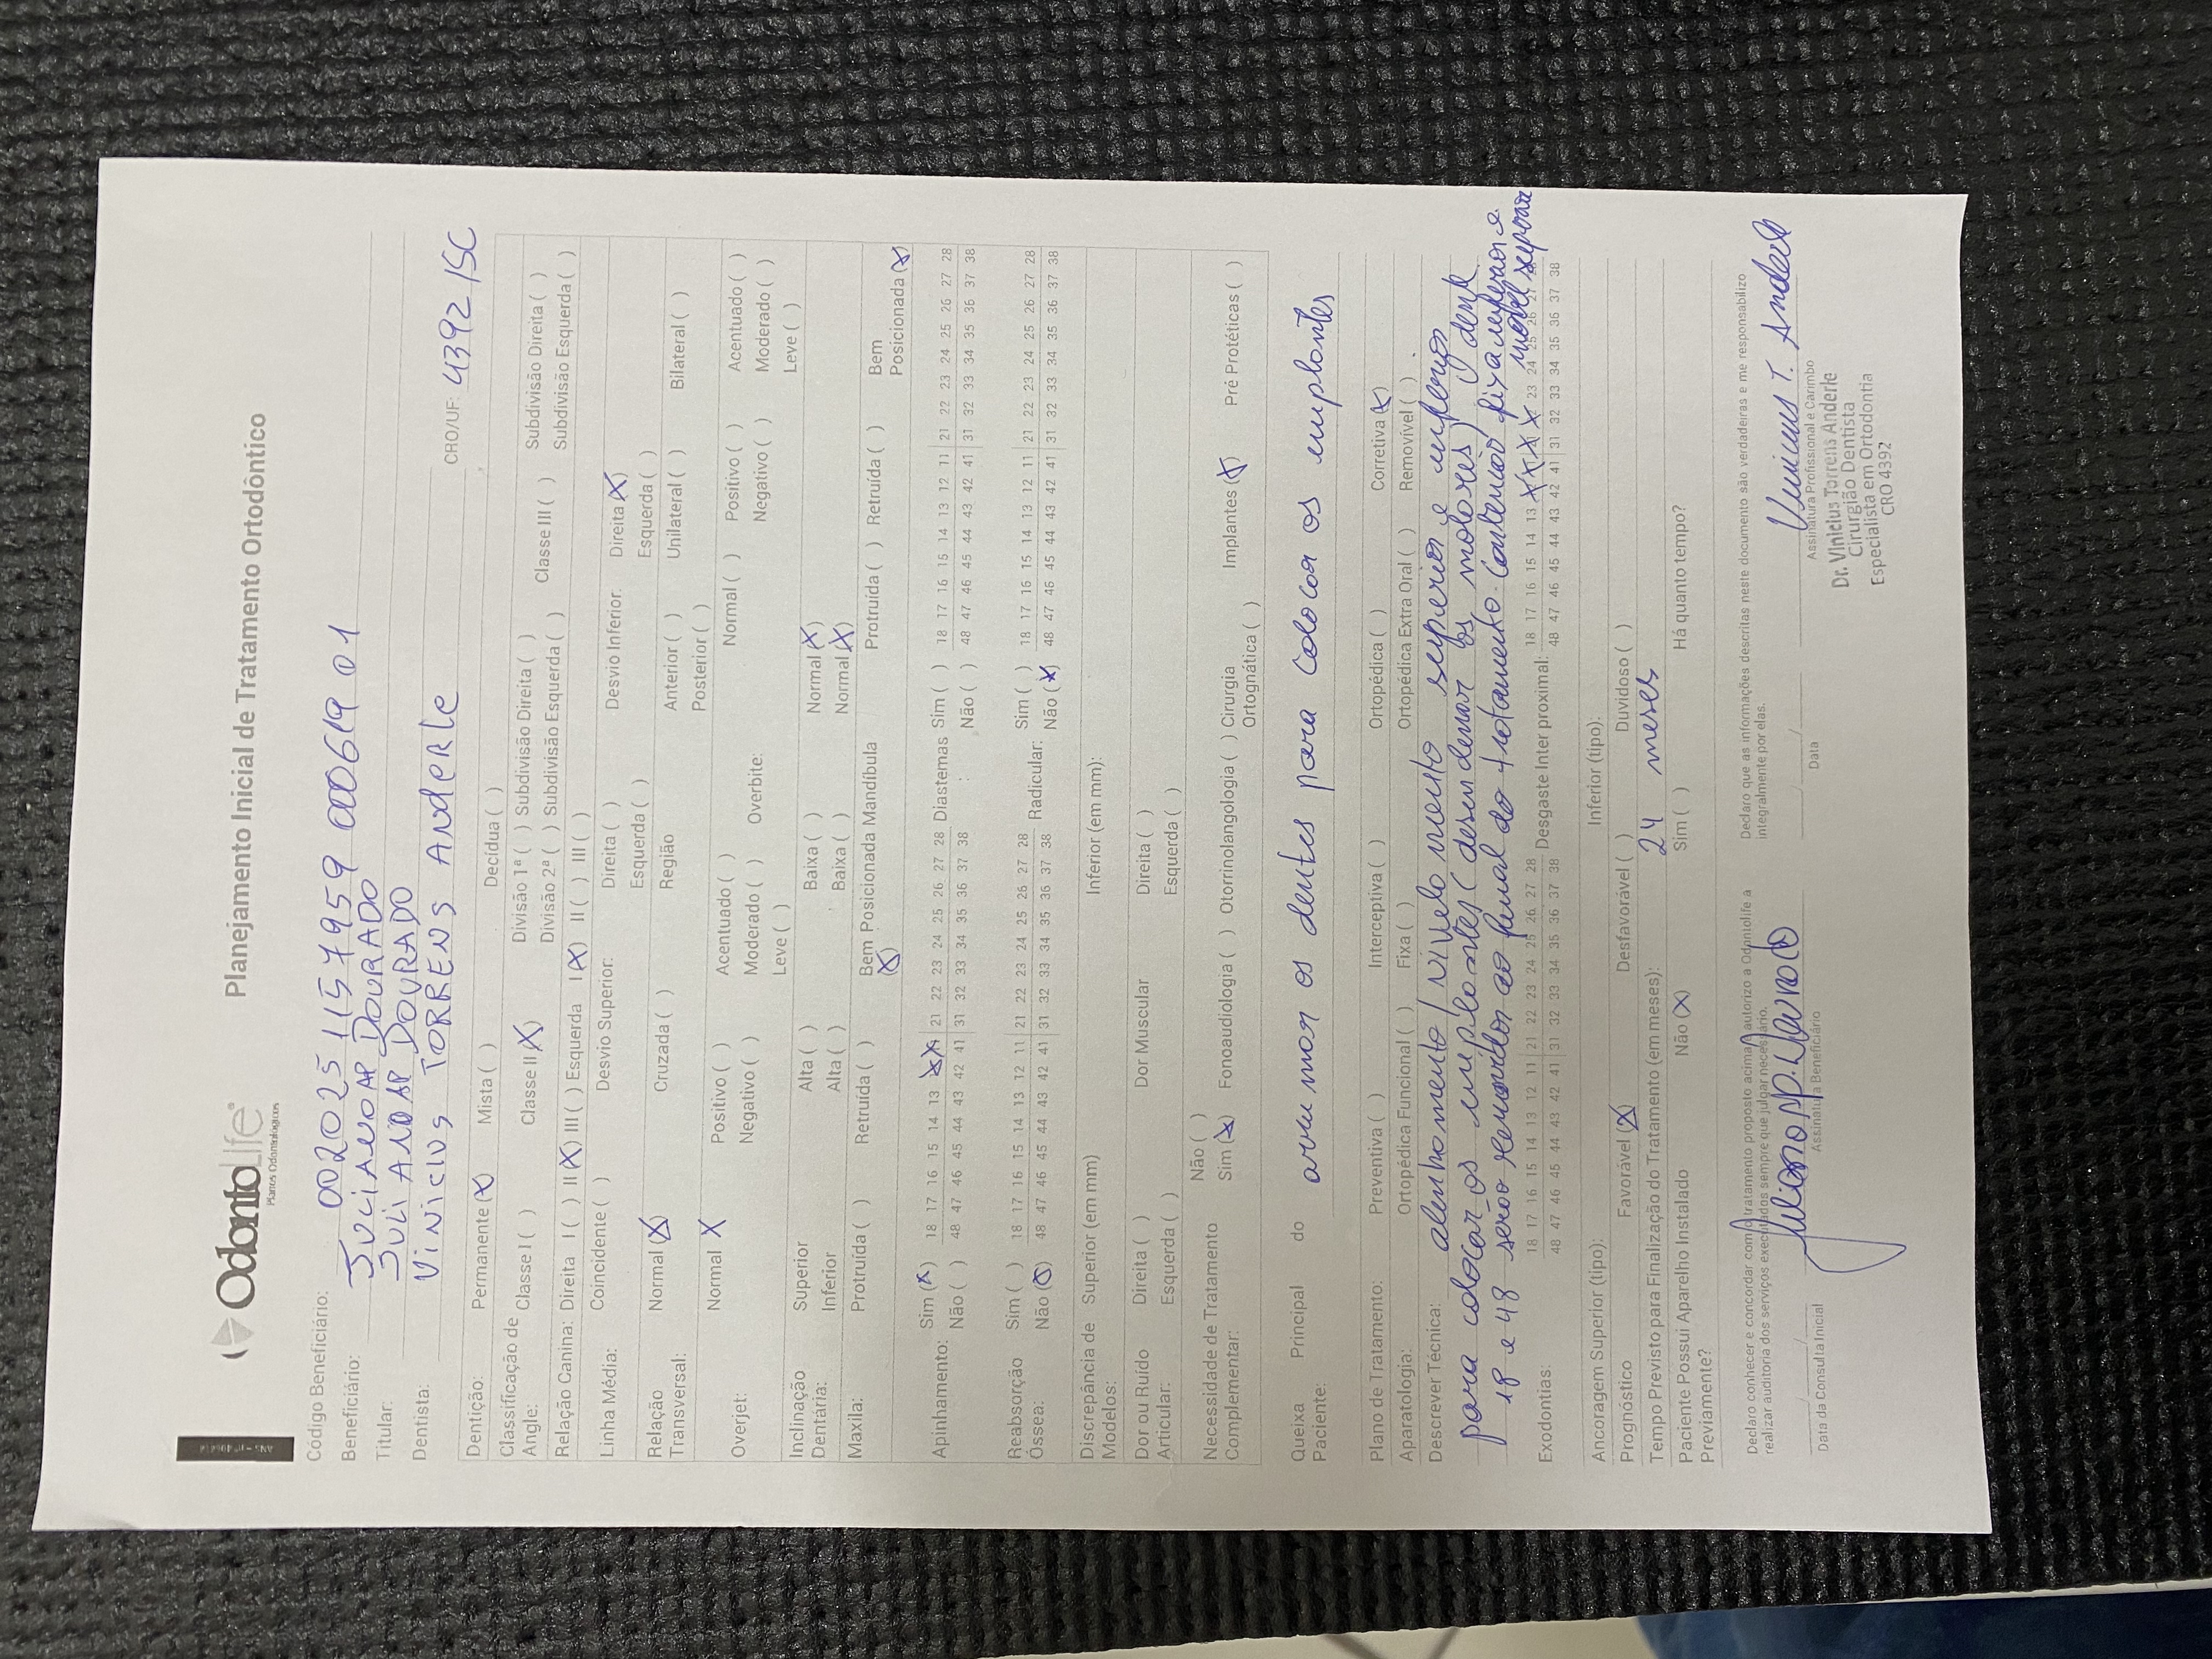 OdontoLife
Planos Odontológicos
Planejamento Inicial de Tratamento Ortodôntico
Código Beneficiário: 002025 115 7959 000619 01
Beneficiário: JULIANO AP DOURADO
Titular: JULIANO AP DOURADO
Dentista: VINICIUS TORRENS ANDERLE CRO/UF: 4392 /SC
Dentição: Permanente (X) Mista ( ) Decídua ( )
Classificação de Angle: Classe I ( ) Classe II (X) Divisão 1ª ( ) Subdivisão Direita ( ) Classe III ( ) Subdivisão Direita ( )
Divisão 2ª ( ) Subdivisão Esquerda ( ) Subdivisão Esquerda ( )
Relação Canina: Direita I ( ) II (X) III ( ) Esquerda I (X) II ( ) III ( )
Linha Média: Coincidente ( ) Desvio Superior: Direita ( ) Desvio Inferior: Direita X
Esquerda ( ) Esquerda ( )
Relação Transversal: Normal (X) Cruzada ( ) Região Anterior ( ) Unilateral ( ) Bilateral ( )
Posterior ( )
Overjet: Normal X Positivo ( ) Acentuado ( ) Overbite: Normal ( ) Positivo ( ) Acentuado ( )
Negativo ( ) Moderado ( ) Negativo ( ) Moderado ( )
Leve ( ) Leve ( )
Inclinação Dentária: Superior Alta ( ) Baixa ( ) Normal (X)
Inferior Alta ( ) Baixa ( ) Normal (X)
Maxila: Protruída ( ) Retruída ( ) Bem Posicionada (X) Mandíbula Protruída ( ) Retruída ( ) Bem Posicionada (X)
Apinhamento: Sim (X) 18 17 16 15 14 13 X X 21 22 23 24 25 26 27 28 Diastemas: Sim ( ) 18 17 16 15 14 13 12 11 21 22 23 24 25 26 27 28
Não ( ) 48 47 46 45 44 43 42 41 31 32 33 34 35 36 37 38 Não ( ) 48 47 46 45 44 43 42 41 31 32 33 34 35 36 37 38
Reabsorção Óssea: Sim ( ) 18 17 16 15 14 13 12 11 21 22 23 24 25 26 27 28 Radicular: Sim ( ) 18 17 16 15 14 13 12 11 21 22 23 24 25 26 27 28
Não (X) 48 47 46 45 44 43 42 41 31 32 33 34 35 36 37 38 Não (X) 48 47 46 45 44 43 42 41 31 32 33 34 35 36 37 38
Discrepância de Modelos: Superior (em mm) Inferior (em mm):
Dor ou Ruído Articular: Direita ( ) Dor Muscular Direita ( )
Esquerda ( ) Esquerda ( )
Necessidade de Tratamento Complementar: Não ( )
Sim (X) Fonoaudiologia ( ) Otorrinolangologia ( ) Cirurgia Ortognática ( ) Implantes (X) Pré Protéticas ( )
Queixa Principal do Paciente: arrumar os dentes para colocar os implantes
Plano de Tratamento: Preventiva ( ) Interceptiva ( ) Ortopédica ( ) Corretiva (X)
Aparatologia: Ortopédica Funcional ( ) Fixa ( ) Ortopédica Extra Oral ( ) Removível ( )
Descrever Técnica: alinhamento / nivelamento superior e inferior
para colocar os implantes (desinclinar os molares)
18 e 48 serão removidos ao final do tratamento. Contenção fixa inferior e
móvel superior
Exodontias: 18 17 16 15 14 13 12 11 21 22 23 24 25 26 27 28 Desgaste Inter proximal: 18 17 16 15 14 13 X X X X 23 24 25 26 27
48 47 46 45 44 43 42 41 31 32 33 34 35 36 37 38 48 47 46 45 44 43 42 41 31 32 33 34 35 36 37 38
Ancoragem Superior (tipo): Inferior (tipo):
Prognóstico Favorável (X) Desfavorável ( ) Duvidoso ( )
Tempo Previsto para Finalização do Tratamento (em meses): 24 meses
Paciente Possui Aparelho Instalado Previamente? Não (X) Sim ( ) Há quanto tempo?
Declaro conhecer e concordar com o tratamento proposto acima, autorizo a Odontolife a
realizar auditoria dos serviços executados sempre que julgar necessário.
Declaro que as informações descritas neste documento são verdadeiras e me responsabilizo
integralmente por elas.
Juliano Ap. Dourado
Vinicius T. Anderle
Data da Consulta Inicial Assinatura Beneficiário Data Assinatura Profissional e Carimbo
Dr. Vinicius Torrens Anderle
Cirurgião Dentista
Especialista em Ortodontia
CRO 4392